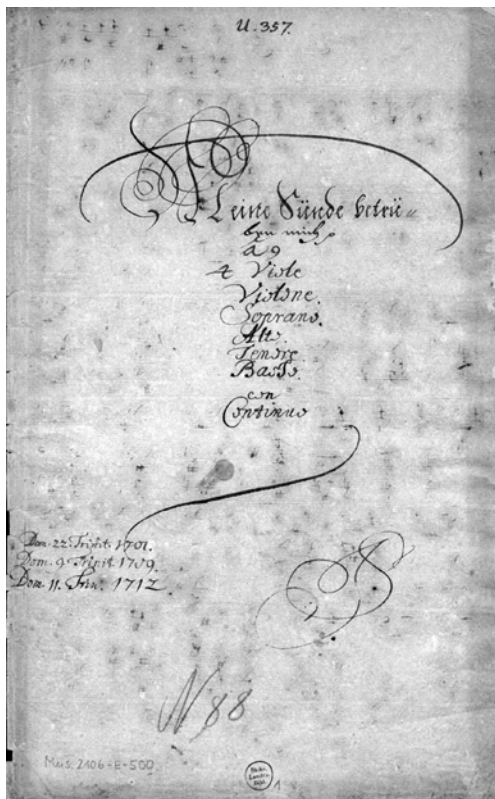 U. 357.
Meine Sünde betrü„
ben mich
â 9
4 Viole
Violone.
Soprano.
Alto.
Tenore
Basso.
con
Continuo
Dom. 22. Trinit. 1701.
Dom. 9. Trinit. 1709.
Dom. 11. Trin. 1712.
N 88
Mus. 2106-E-500
1